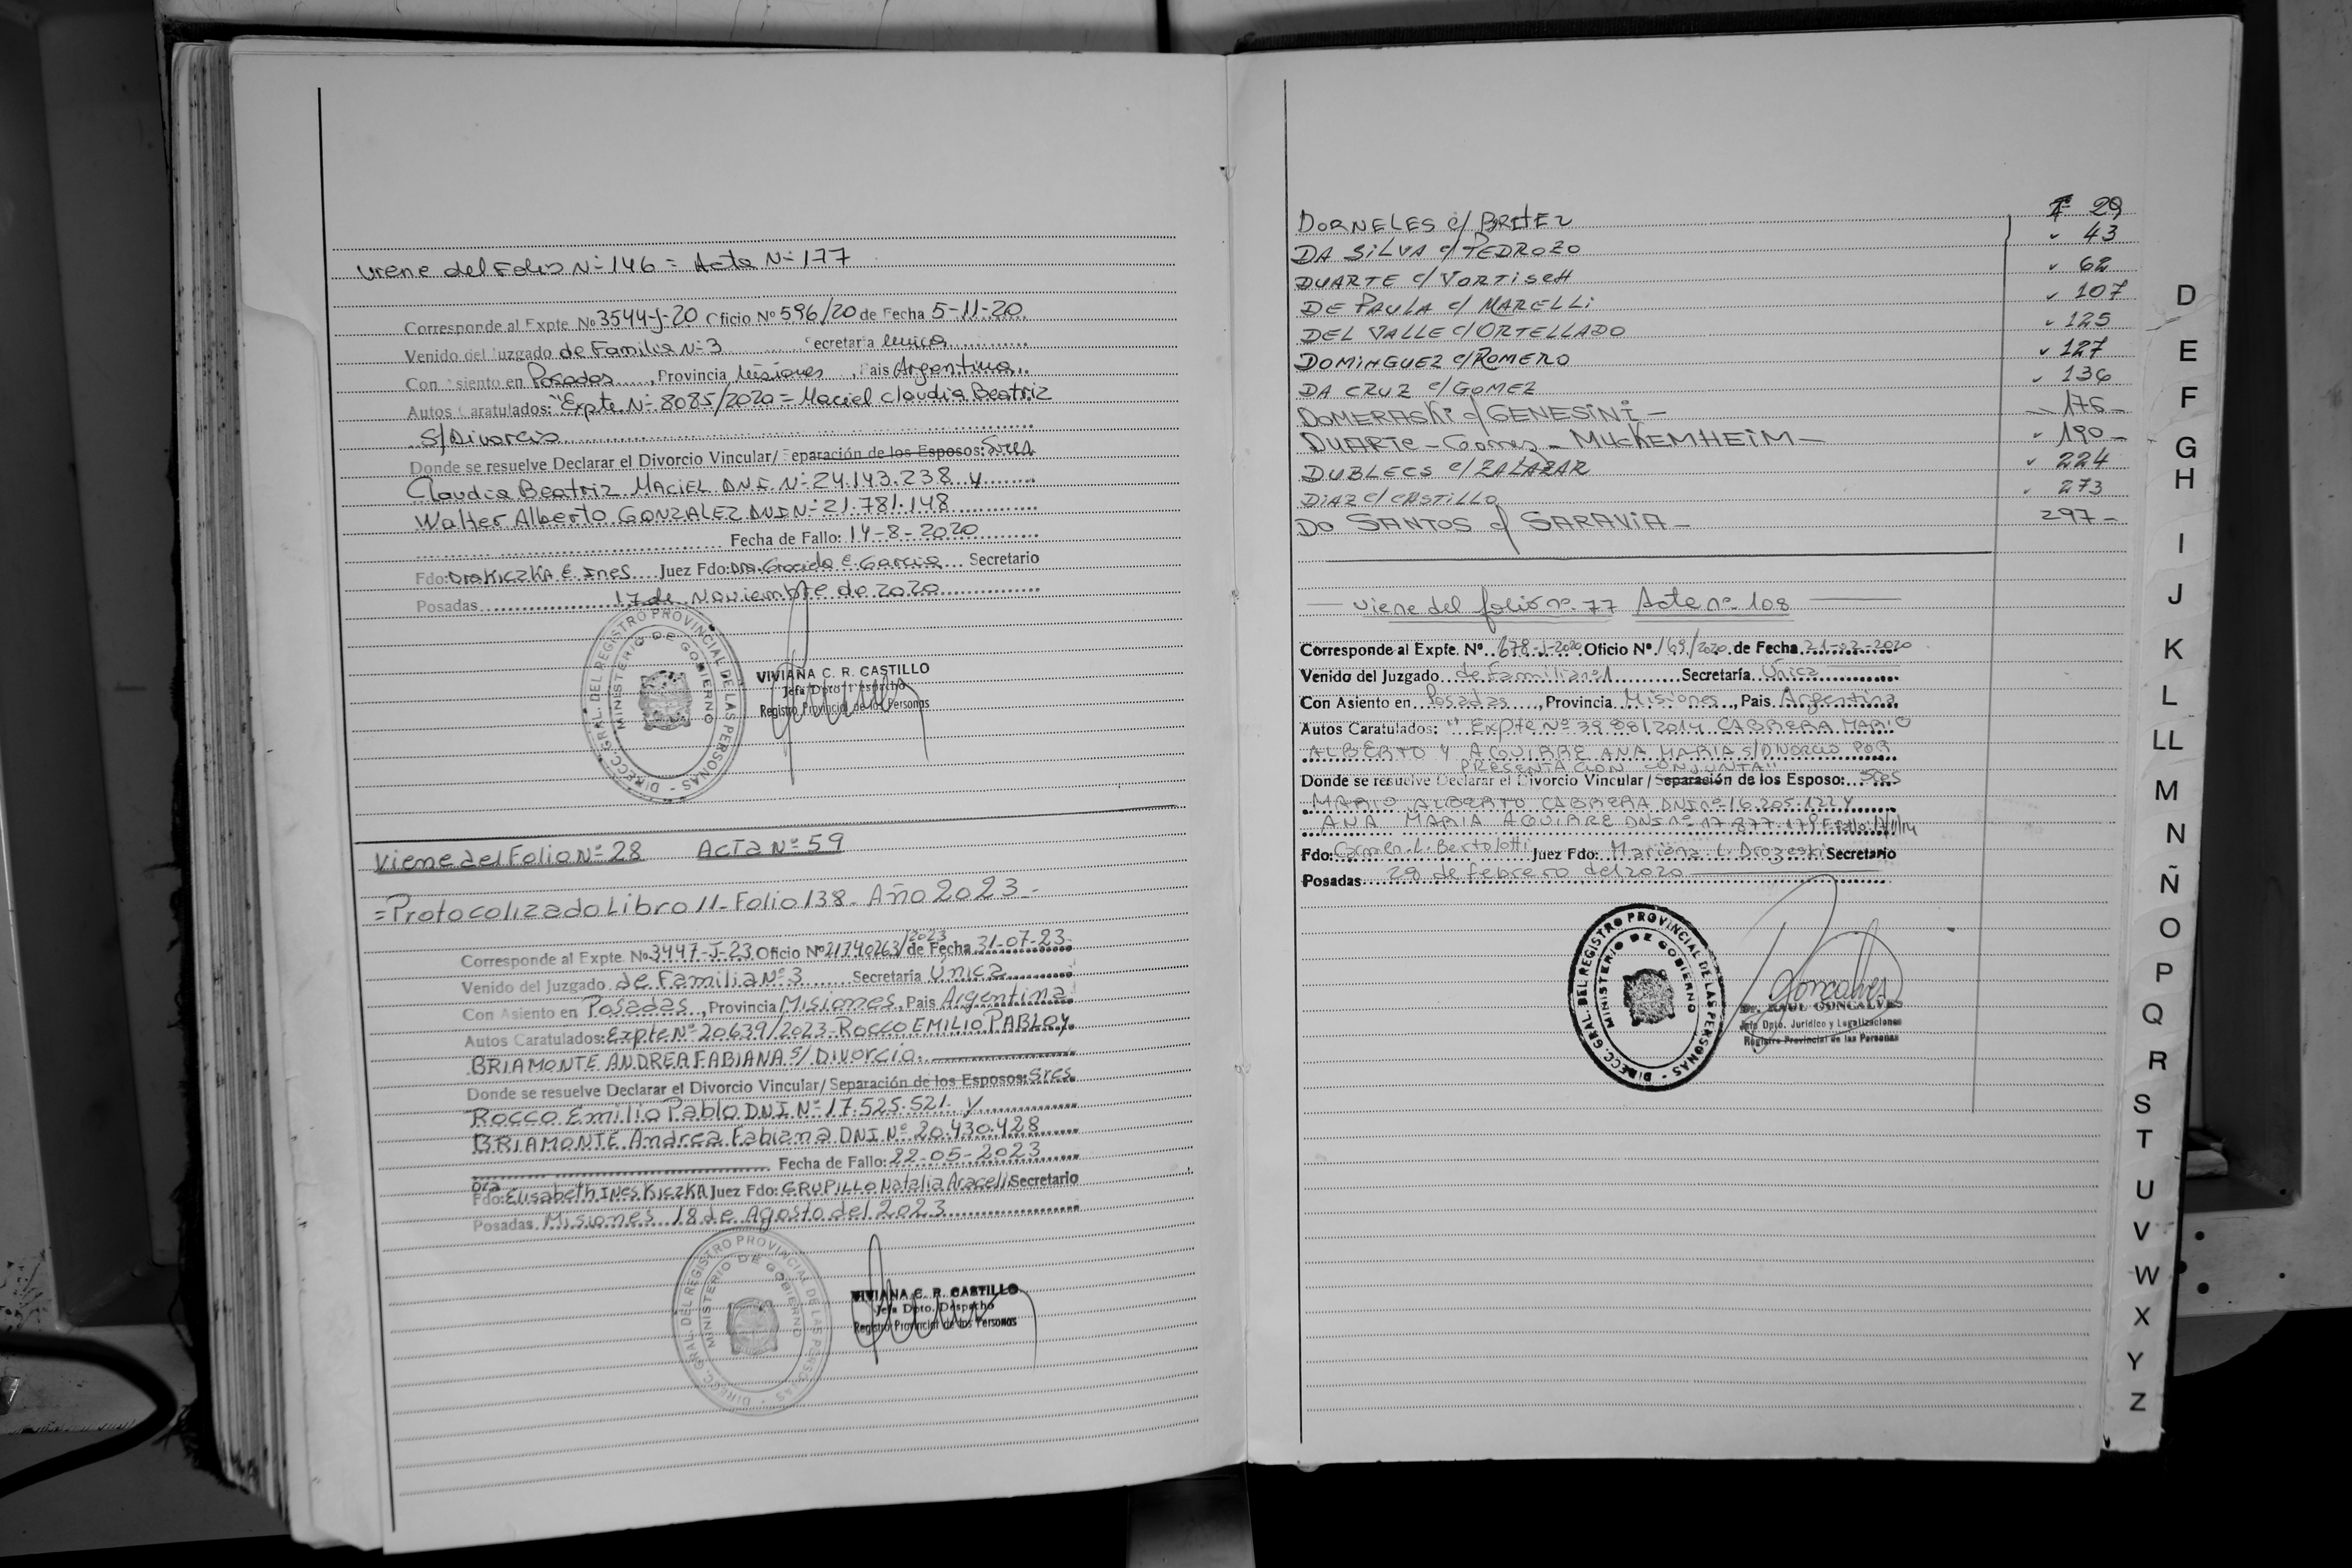 Viene del Folio N° 146 = Acta N° 177
Corresponde al Expte. Nº 3544-J-20 Oficio Nº 596/20 de Fecha 5-11-20
Venido del Juzgado de Familia N° 3 Secretaría Unica
Con Asiento en Posadas, Provincia Misiones, Pais Argentina
Autos Caratulados: "Expte N° 8085/2020 = Maciel Claudia Beatriz
S/Divorcio
Donde se resuelve Declarar el Divorcio Vincular/ Separación de los Esposos: Sres
Claudia Beatriz MACIEL D.N.I. N° 24.143.238 y
Walter Alberto GONZALEZ DNI N° 21.781.148
Fecha de Fallo: 14-8-2020
Fdo: Dra KICZKA E. Ines Juez Fdo: Dra. Graciela E. Garcia Secretario
Posadas 17 de Noviembre de 2020
DIRECC. GRAL. DEL REGISTRO PROVINCIAL DE LAS PERSONAS
MINISTERIO DE GOBIERNO
VIVIANA C. R. CASTILLO
Jefa Dpto. Despacho
Registro Provincial de las Personas
Viene del Folio Nº 28 Acta Nº 59
= Protocolizado Libro 11 - Folio 138 - Año 2023 -
Corresponde al Expte. Nº 3447-J-23 Oficio Nº 21740263/2023 de Fecha 31-07-23
Venido del Juzgado de Familia Nº 3 Secretaría Única
Con Asiento en Posadas, Provincia Misiones, Pais Argentina
Autos Caratulados: Expte Nº 20639/2023 - ROCCO EMILIO PABLO y
BRIAMONTE ANDREA FABIANA s/ Divorcio.
Donde se resuelve Declarar el Divorcio Vincular/ Separación de los Esposos: Sres
ROCCO Emilio Pablo DNI Nº 17.525.521 y
BRIAMONTE Andrea Fabiana DNI Nº 20.430.428
Fecha de Fallo: 22-05-2023
Dra
Fdo: Elisabeth INES KICZKA Juez Fdo: GRUPILLO Natalia Araceli Secretario
Posadas Misiones 18 de Agosto del 2023
DIRECC. GRAL. DEL REGISTRO PROVINCIAL DE LAS PERSONAS
MINISTERIO DE GOBIERNO
VIVIANA C. R. CASTILLO
Jefa Dpto. Despacho
Registro Provincial de las Personas
DORNELES c/ BRITEZ 29
DA SILVA c/ PEDROZO 43
DUARTE c/ VORTISCH 62
DE PAULA c/ MARELLI 107
DEL VALLE c/ ORTELLADO 125
DOMINGUEZ c/ ROMERO 127
DA CRUZ c/ GOMEZ 136
DOMERASKI c/ GENESINI - 176 -
DUARTE - Gomes - MUCKEMHEIM - 190 -
DUBLECS c/ ZALAZAR 224
DIAZ c/ CASTILLO 273
DO SANTOS c/ SARAVIA - 297 -
Viene del folio nº 77 Acta nº 108
Corresponde al Expte. Nº 678-J-2020 Oficio Nº 169/2020 de Fecha 21-02-2020
Venido del Juzgado de Familia nº 1 Secretaría Única
Con Asiento en Posadas, Provincia Misiones, Pais Argentina
Autos Caratulados: "Expte Nº 3988/2014 CABRERA MARIO
ALBERTO Y AGUIRRE ANA MARIA s/DIVORCIO POR
PRESENTACION CONJUNTA"
Donde se resuelve Declarar el Divorcio Vincular/Separación de los Esposo: Sres
MARIO ALBERTO CABRERA DNI nº 16.205.122 Y
ANA MARIA AGUIRRE DNI nº 17.877.179
Fdo: Carmen L. Bertolotti Juez Fdo: Mariana L. Drozeski Secretario
Posadas 28 de febrero del 2020
DIRECC. GRAL. DEL REGISTRO PROVINCIAL DE LAS PERSONAS
MINISTERIO DE GOBIERNO
Dr. RAUL GONCALVES
Jefe Dpto. Jurídico y Legalizaciones
Registro Provincial de las Personas
D
E
F
G
H
I
J
K
L
LL
M
N
Ñ
O
P
Q
R
S
T
U
V
W
X
Y
Z